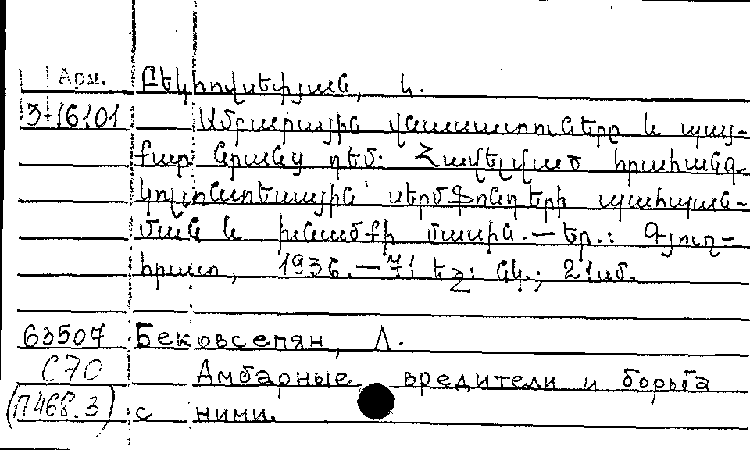 Арм. Բեկհովսեփյան, Լ.
3-16101 Ամբարային վնասատուները և պայ-
քար նրանց դեմ: Հավելված հրահանգ.
կոլտնտեսային սերմֆոնդերի պահպան-
ման և խնամքի մասին.—Եր.: Գյուղ-
հրատ, 1936.—71 եջ: նկ.; 21սմ.
63507 Бековсепян, Л.
С70 Амбарные вредители и борьба
(П468.3) с ними.